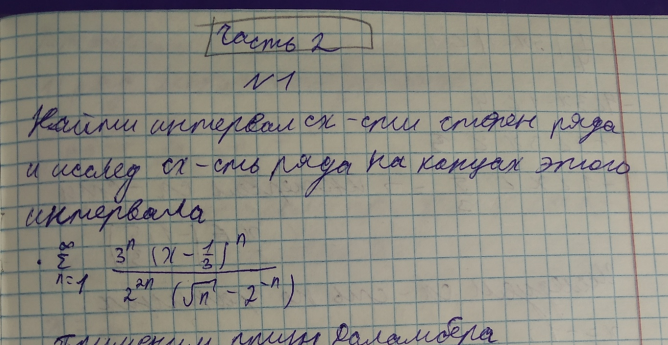 Часть 2
N1
Найти интервал сх-сти степен ряда
и исслед сх-сть ряда на концах этого
интервала
· ∞ Σ n=1 3^n (x - 1/3)^n / 2^{2n} (√n - 2^{-n})
Применим призн Даламбера